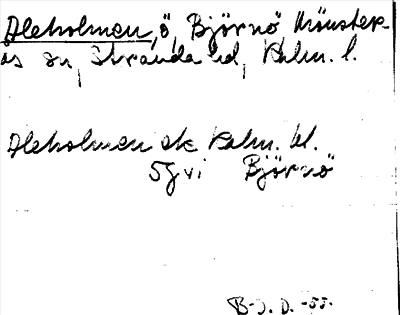 Aleholmen, ö, Björnö Mönster-
ås sn, Stranda hd, Kalm. l.
Aleholmen ek Kalm. bl.
5g vi Björnö
B-J. D. -55.